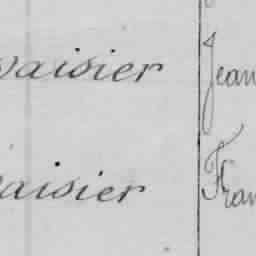 vaisier Jean
aisier Fran